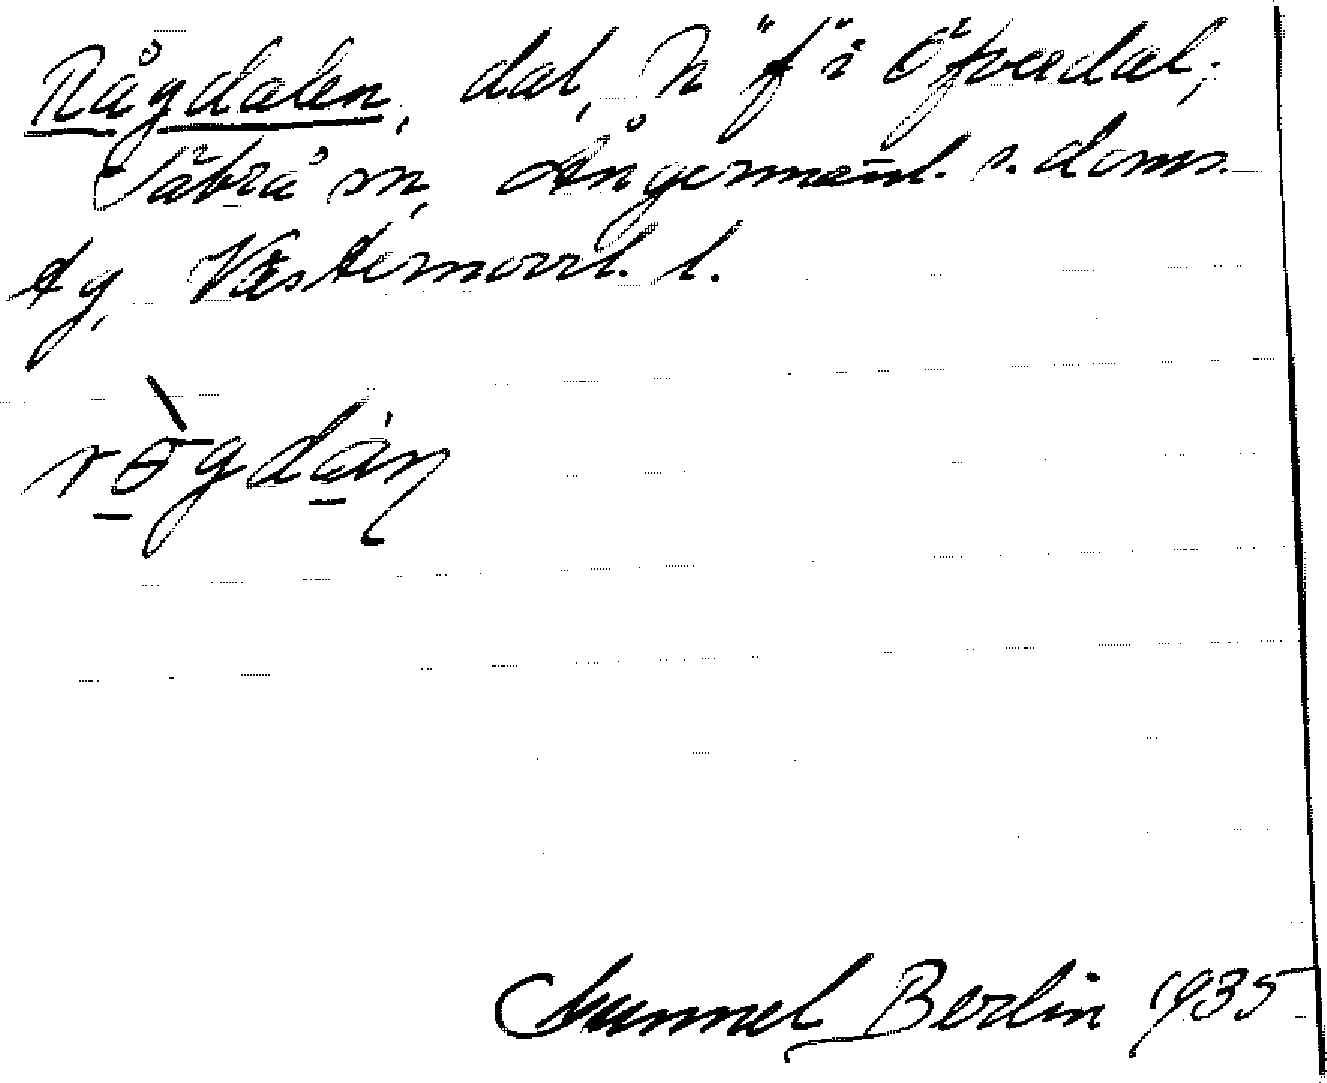 Rågdalen, dal, n "f" i Öfverdal,
Säbrå sn, Ångermanl. s. doms.
tg, Västernorrl. l.
rògdán
Gunnel Berlin 1935